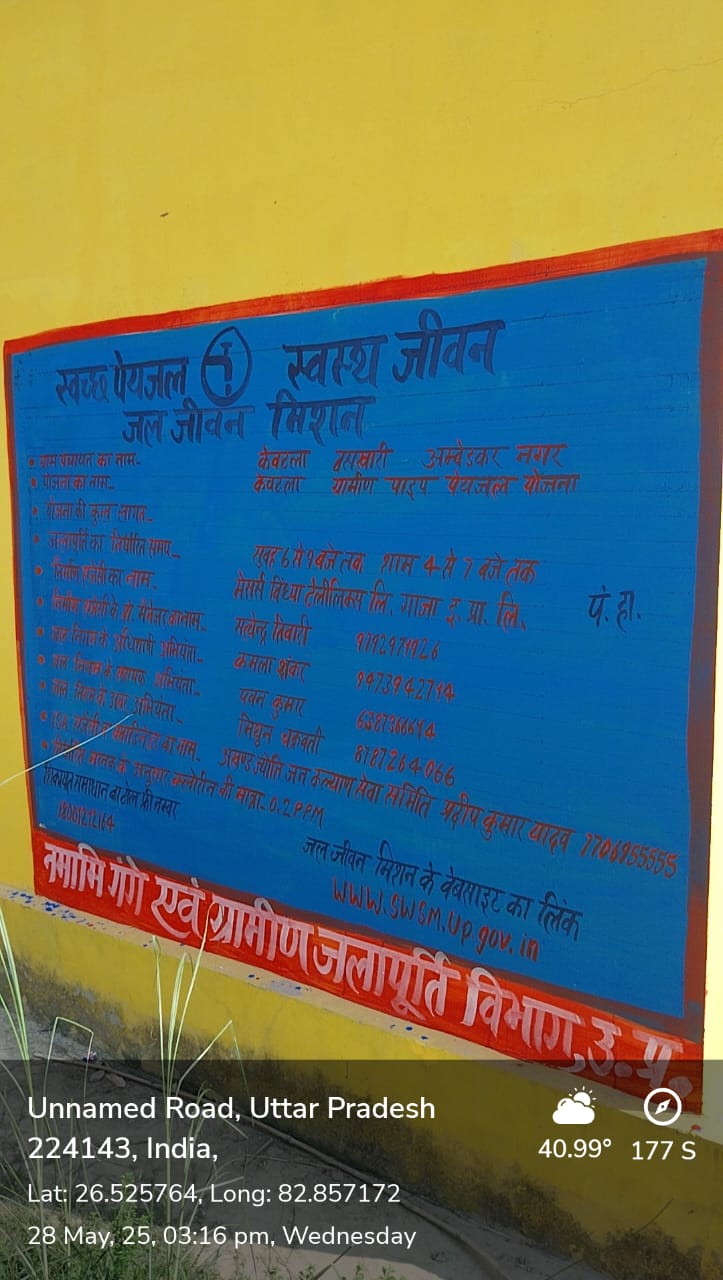 स्वच्छ पेयजल स्वस्थ जीवन
जल जीवन मिशन
ग्राम पंचायत का नाम- केवटला बसखारी अम्बेडकर नगर
योजना का नाम- केवटला ग्रामीण पाइप पेयजल योजना
योजना की कुल लागत-
जलापूर्ति का निर्धारित समय- सुबह 6 से 9 बजे तक शाम 4 से 7 बजे तक
निर्माण एजेंसी का नाम- मेसर्स विंध्या टेलीलिंक्स लि. गाजा इ. प्रा. लि. पं. हा.
निर्माण एजेंसी के प्रो. मैनेजर का नाम- सत्येन्द्र तिवारी 9792971926
जल निगम के अधिशाषी अभियंता- कमला शंकर 9473942714
जल निगम के सहायक अभियंता- पवन कुमार 6387366614
जल निगम के अवर अभियंता- मिथुन चक्रवती 8787264066
ISA एजेंसी का नाम- अखण्ड ज्योति जन कल्याण सेवा समिति प्रदीप कुमार यादव 7706955555
मानक के अनुसार क्लोरीन की मात्रा- 0.2 PPM
शिकायत समाधान का टोल फ्री नम्बर
18001212164
जल जीवन मिशन के वेबसाइट का लिंक
WWW.SWSM.Up.gov.in
नमामि गंगे एवं ग्रामीण जलापूर्ति विभाग, उ. प्र.
Unnamed Road, Uttar Pradesh
224143, India,
Lat: 26.525764, Long: 82.857172
28 May, 25, 03:16 pm, Wednesday
40.99° 177 S